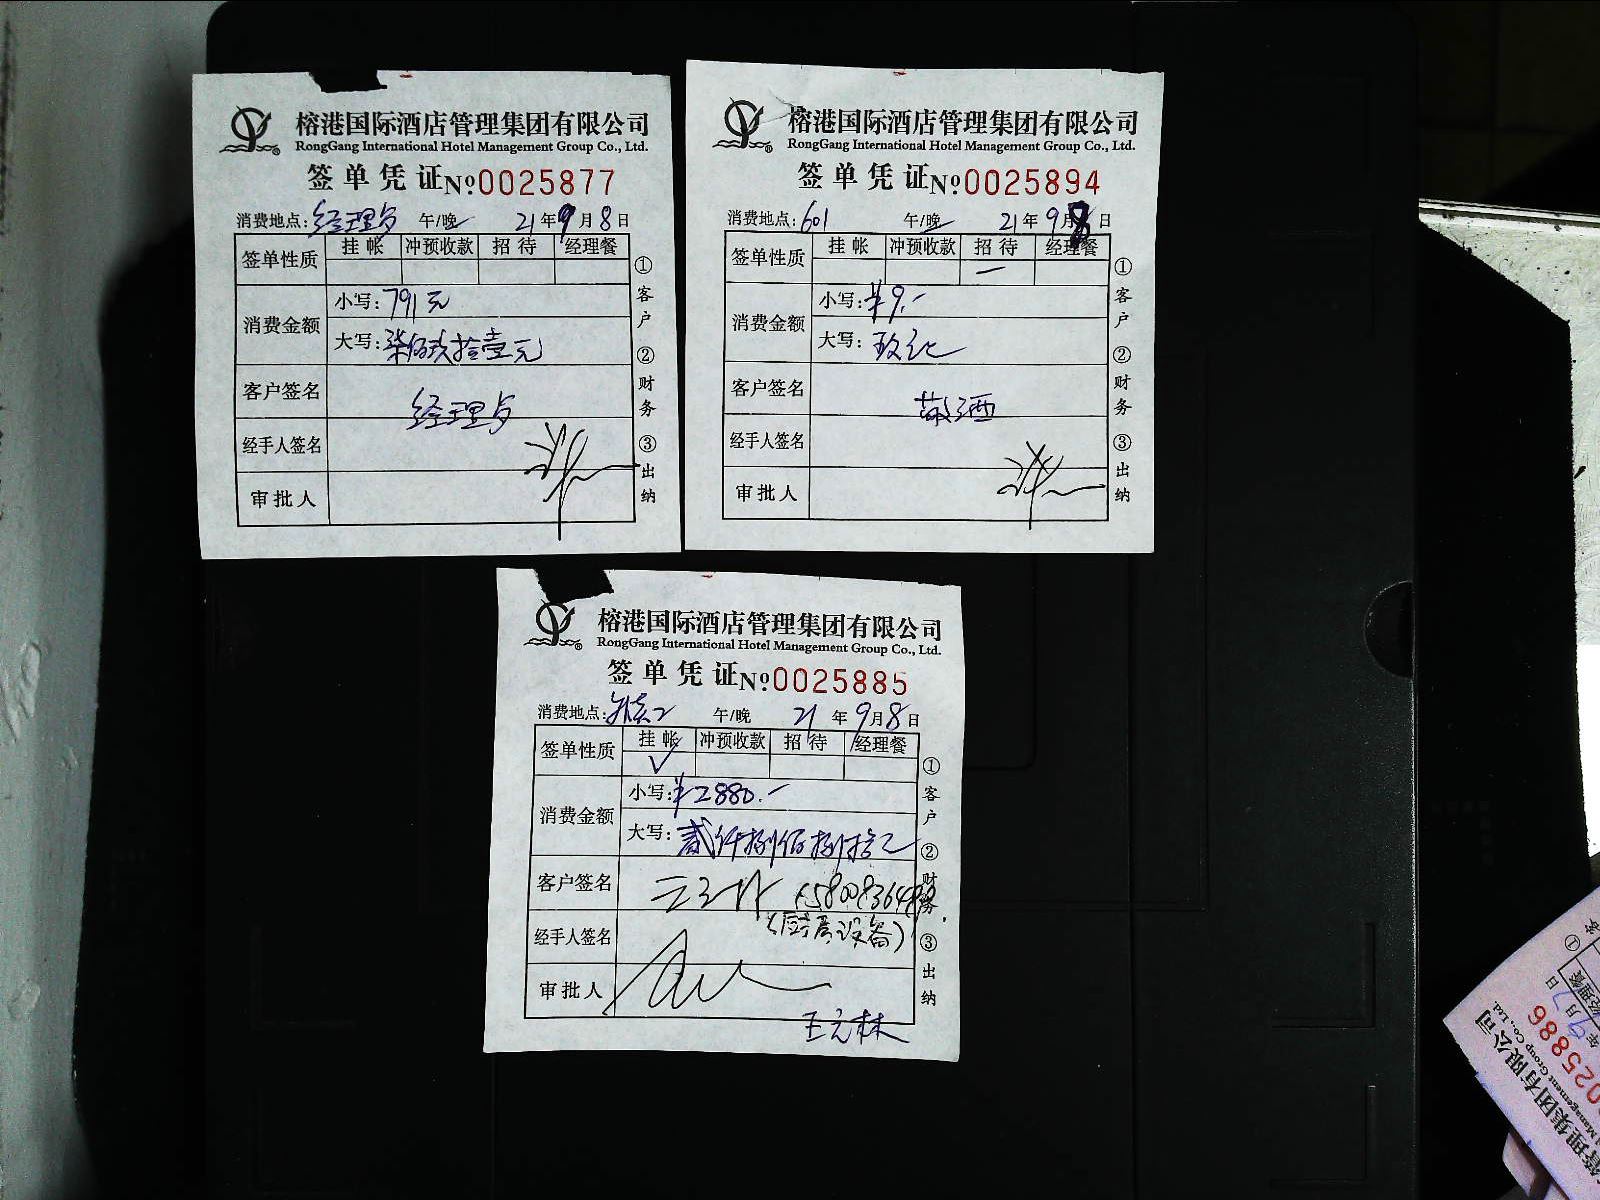 榕港国际酒店管理集团有限公司
RongGang International Hotel Management Group Co., Ltd.
签单凭证 №0025877
消费地点: 经理 午/晚 21年9月8日
签单性质 挂帐 冲预收款 招待 经理餐
消费金额 小写: 791元
大写: 柒佰玖拾壹元
客户签名 经理
经手人签名
审批人
①客户 ②财务 ③出纳
榕港国际酒店管理集团有限公司
RongGang International Hotel Management Group Co., Ltd.
签单凭证 №0025894
消费地点: 601 午/晚 21年9月8日
签单性质 挂帐 冲预收款 招待 经理餐
消费金额 小写: ¥9.-
大写: 玖元
客户签名 敬酒
经手人签名
审批人
①客户 ②财务 ③出纳
榕港国际酒店管理集团有限公司
RongGang International Hotel Management Group Co., Ltd.
签单凭证 №0025885
消费地点: 午/晚 21年9月8日
签单性质 挂帐 冲预收款 招待 经理餐
√
消费金额 小写: ¥2880.-
大写: 贰仟捌佰捌拾元
客户签名
(厨房设备)
经手人签名
审批人
王元林
①客户 ②财务 ③出纳
管理集团有限公司
Management Group Co., Ltd.
0025886
年9月7日
经理餐
①客